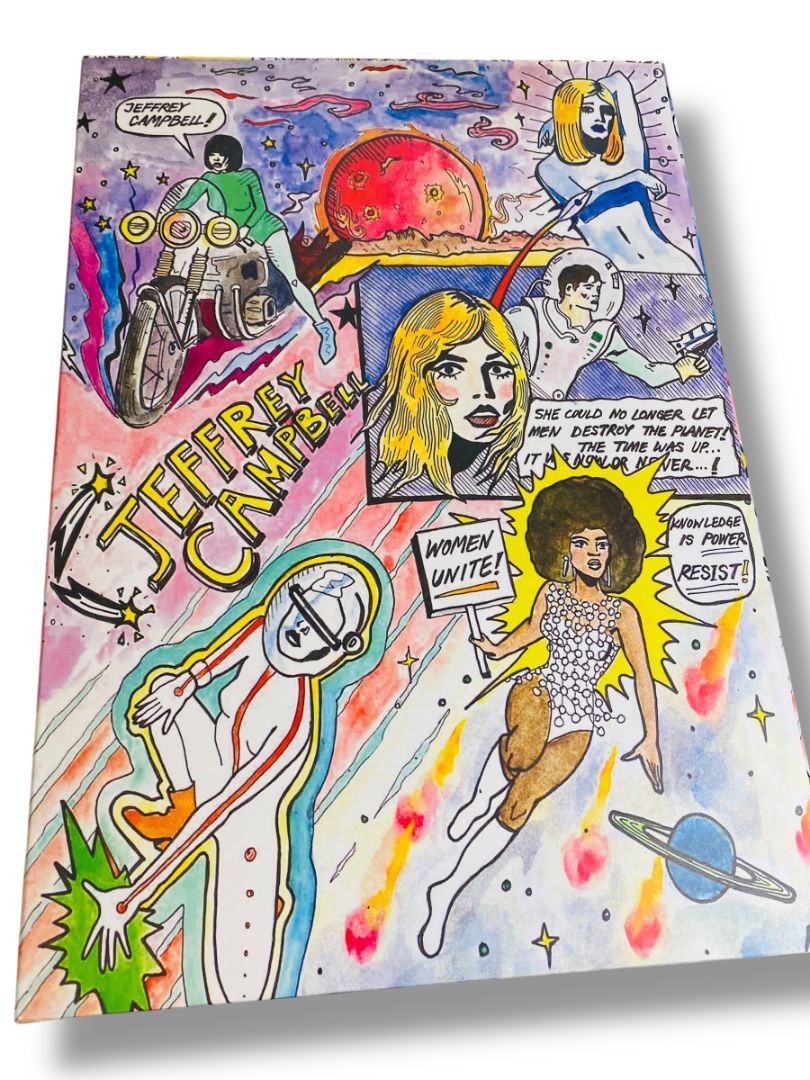 JEFFREY
CAMPBELL!
JEFFREY
CAMPBELL
SHE COULD NO LONGER LET
MEN DESTROY THE PLANET!
THE TIME WAS UP...
IT WAS NOW OR NEVER...!
WOMEN
UNITE!
KNOWLEDGE
IS POWER
RESIST!